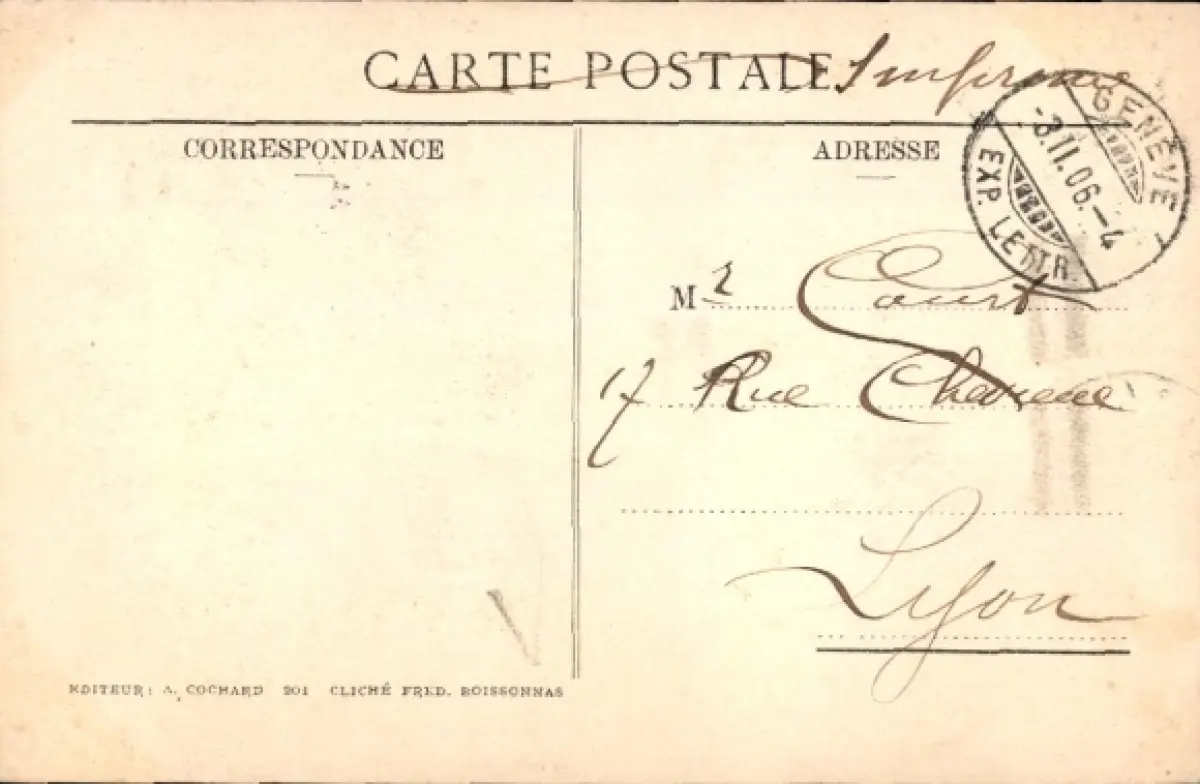 CARTE POSTALE Imprimé
CORRESPONDANCE
ADRESSE
GENÈVE
-3.II.06.-4
EXP. LETTR.
Mr Court
17 Rue
Lyon
EDITEUR: A. COCHARD 201 CLICHÉ FRED. BOISSONNAS